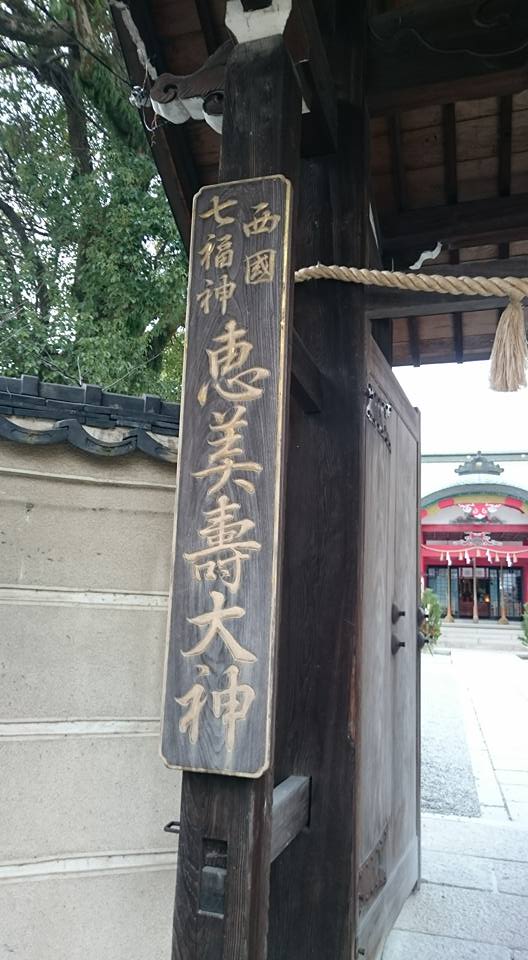 西國
七福神
恵美壽大神